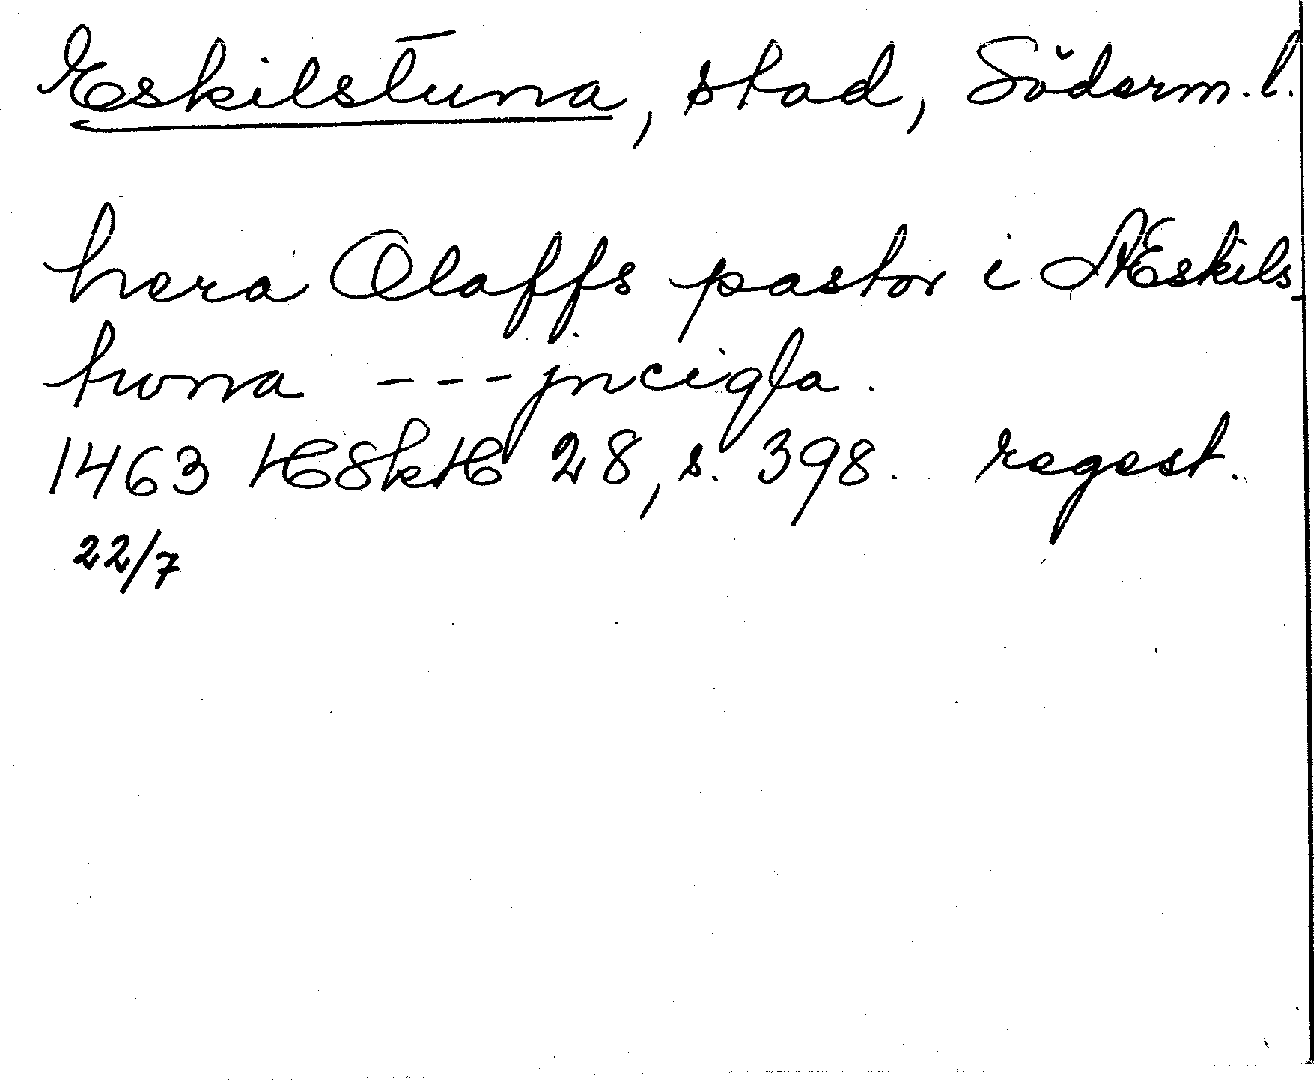 Eskilstuna, stad, Söderm. l.
hera Olaffs pastor i Æskils-
twna --- jncigla.
1463 HSkH 28, s. 398. regest.
22/7